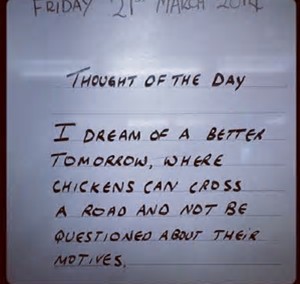 FRIDAY 21ST MARCH 2014
THOUGHT OF THE DAY
I DREAM OF A BETTER
TOMORROW, WHERE
CHICKENS CAN CROSS
A ROAD AND NOT BE
QUESTIONED ABOUT THEIR
MOTIVES.